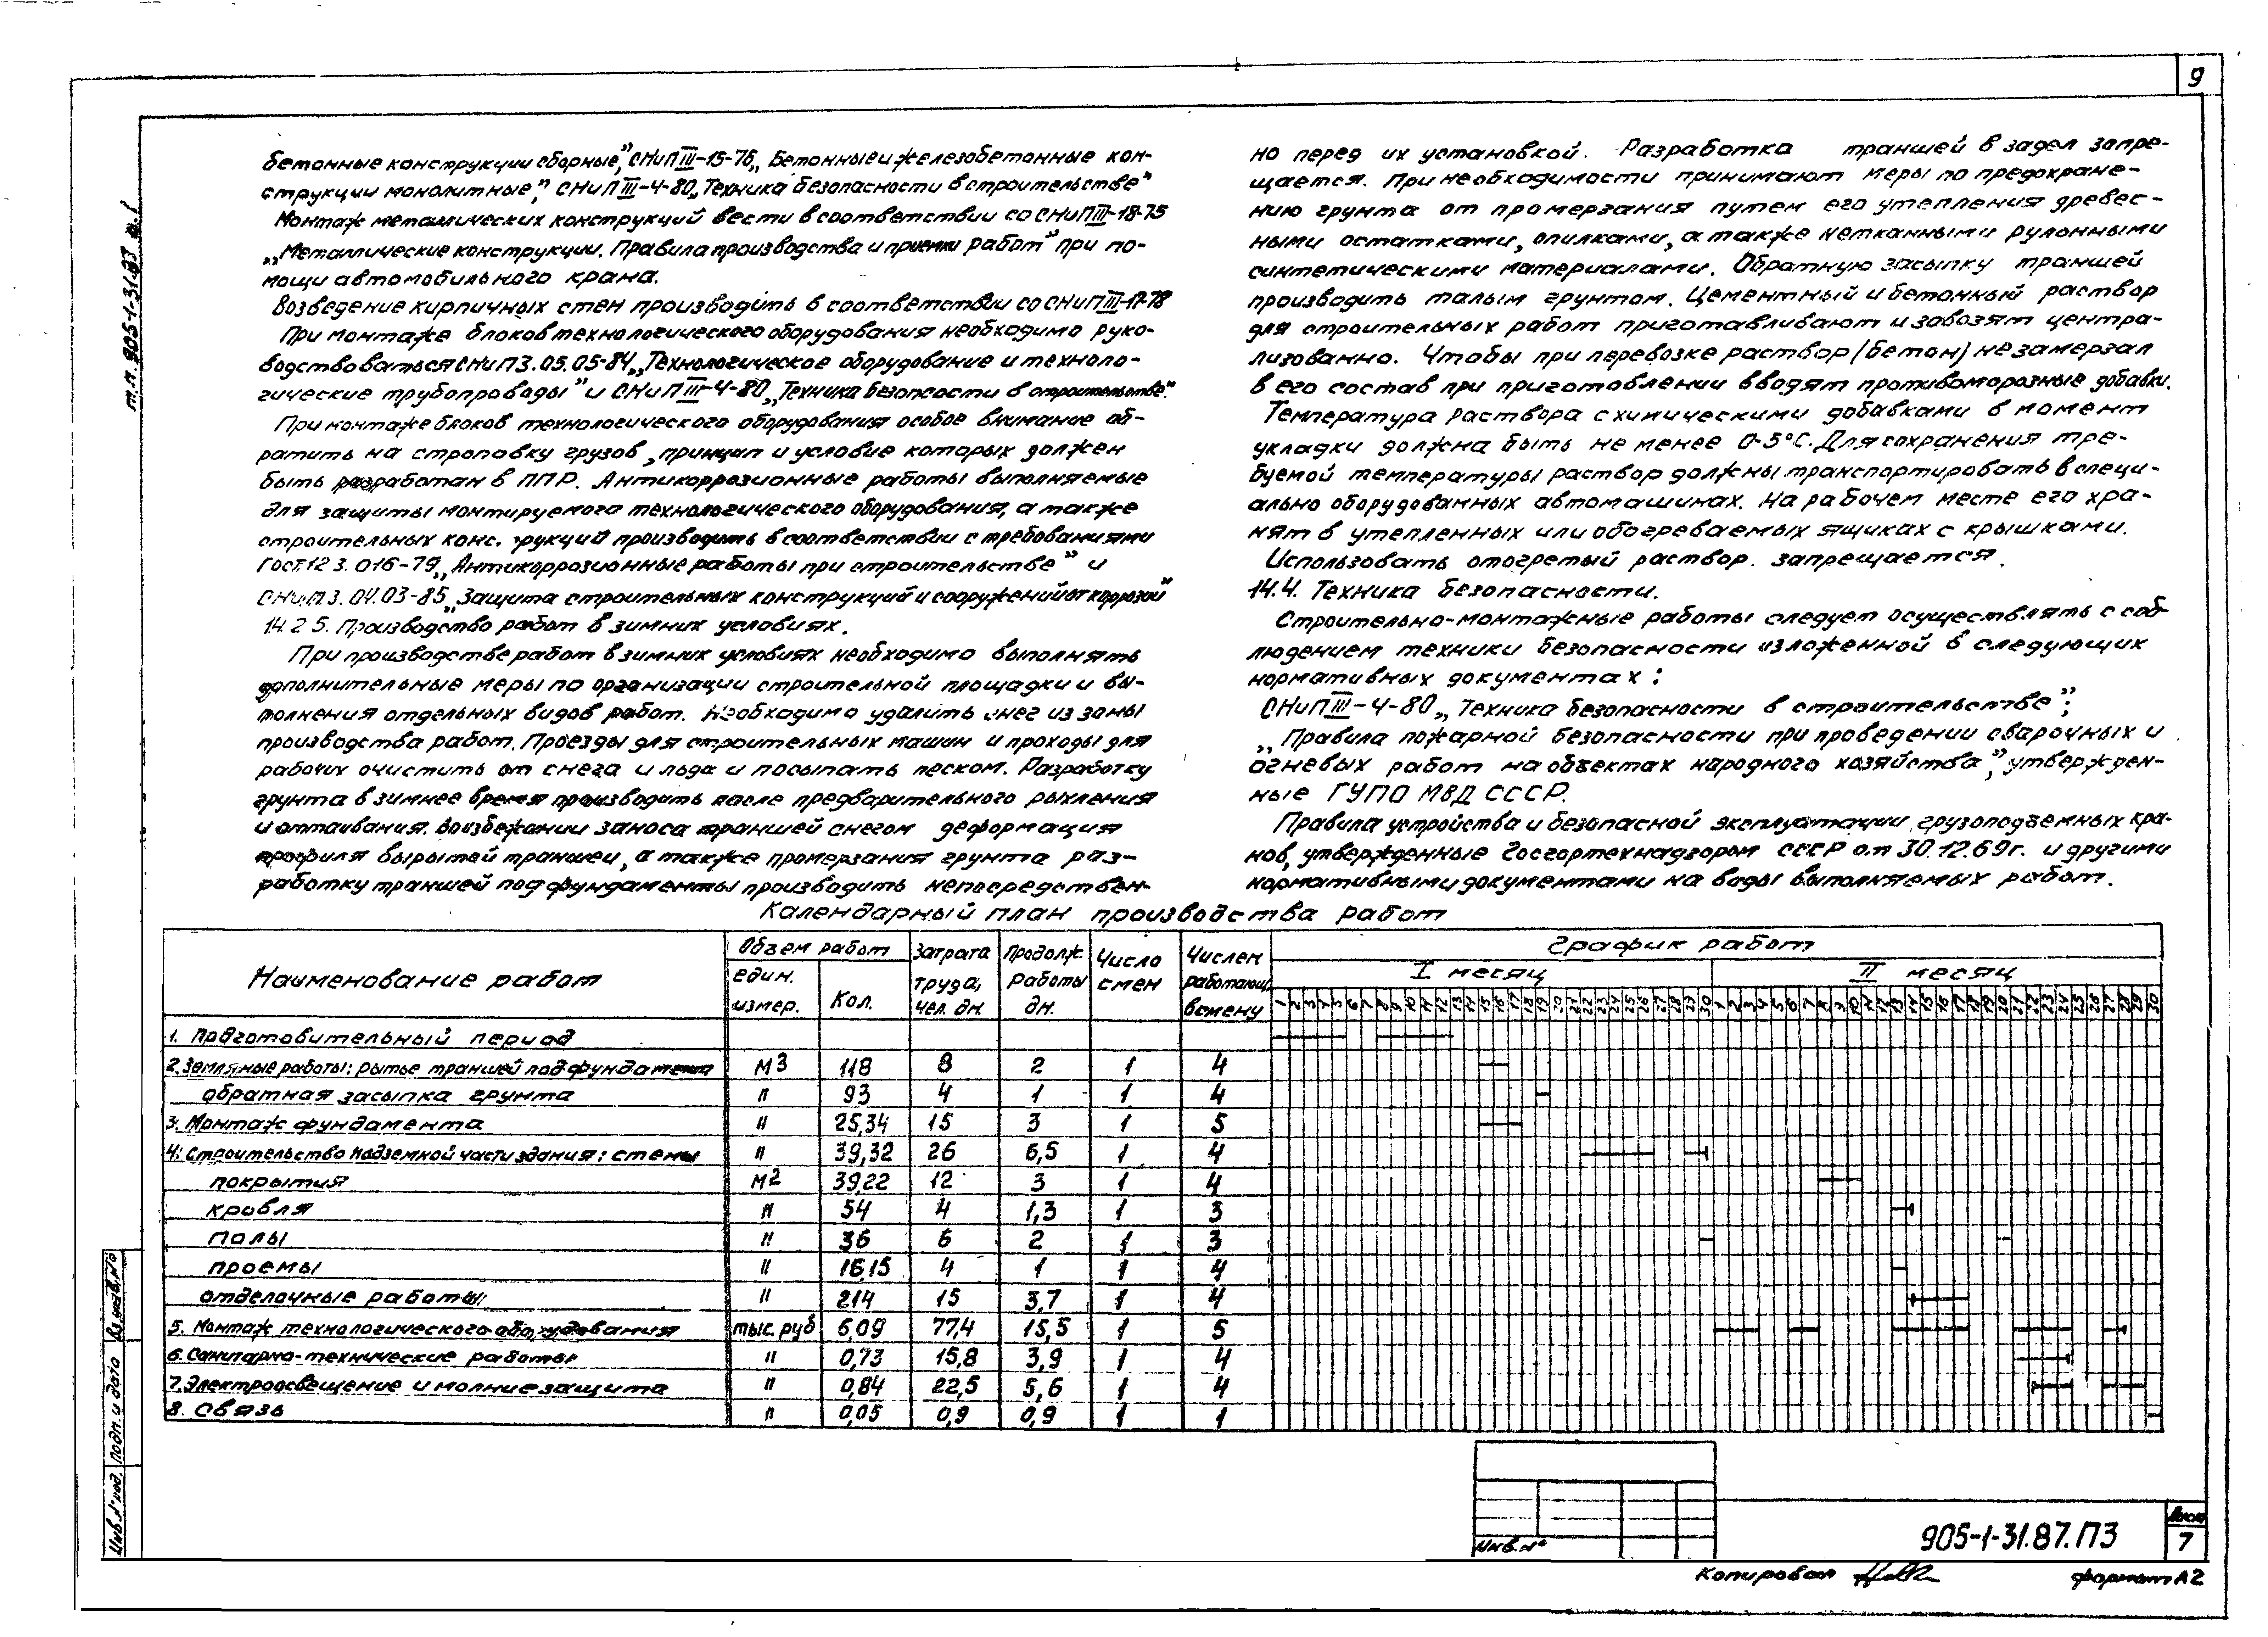 9
т.п. 905-1-31.87 а.1
бетонные конструкции сборные”, СНиП III-15-76 „Бетонные и железобетонные кон-
струкции монолитные”, СНиП III-4-80 „Техника безопасности в строительстве”
Монтаж металлических конструкций вести в соответствии со СНиП III-18-75
„Металлические конструкции. Правила производства и приемки работ” при по-
мощи автомобильного крана.
Возведение кирпичных стен производить в соответствии со СНиП III-17-78
При монтаже блоков технологического оборудования необходимо руко-
водствоваться СНиП 3.05.05-84 „Технологическое оборудование и техноло-
гические трубопроводы” и СНиП III-4-80 „Техника безопасности в строительстве”.
При монтаже блоков технологического оборудования особое внимание об-
ратить на строповку грузов, принцип и условие которых должен
быть разработан в ППР. Антикоррозионные работы выполняемые
для защиты монтируемого технологического оборудования, а также
строительных конструкций производить в соответствии с требованиями
ГОСТ 12.3.016-79 „Антикоррозионные работы при строительстве” и
СНиП 3.04.03-85 „Защита строительных конструкций и сооружений от коррозии”
14.2.5. Производство работ в зимних условиях.
При производстве работ в зимних условиях необходимо выполнять
дополнительные меры по организации строительной площадки и вы-
полнения отдельных видов работ. Необходимо удалить снег из зоны
производства работ. Проезды для строительных машин и проходы для
рабочих очистить от снега и льда и посыпать песком. Разработку
грунта в зимнее время производить после предварительного рыхления
и оттаивания. Во избежании заноса траншей снегом деформация
профиля вырытой траншеи, а также промерзания грунта раз-
работку траншей под фундаменты производить непосредствен-
но перед их установкой. Разработка траншей в задел запре-
щается. При необходимости принимают меры по предохране-
нию грунта от промерзания путем его утепления древес-
ными остатками, опилками, а также нетканными рулонными
синтетическими материалами. Обратную засыпку траншей
производить талым грунтом. Цементный и бетонный раствор
для строительных работ приготавливают и завозят центра-
лизованно. Чтобы при перевозке раствор (бетон) не замерзал
в его состав при приготовлении вводят противоморозные добавки.
Температура раствора с химическими добавками в момент
укладки должна быть не менее 0-5°С. Для сохранения тре-
буемой температуры раствор должны транспортировать в специ-
ально оборудованных автомашинах. На рабочем месте его хра-
нят в утепленных или обогреваемых ящиках с крышками.
Использовать отогретый раствор. запрещается.
14.4. Техника безопасности.
Строительно-монтажные работы следует осуществлять с соб-
людением техники безопасности изложенной в следующих
нормативных документах:
СНиП III-4-80 „Техника безопасности в строительстве”;
„Правила пожарной безопасности при проведении сварочных и
огневых работ на объектах народного хозяйства”, утвержден-
ные ГУПО МВД СССР.
Правила устройства и безопасной эксплуатации грузоподъемных кра-
нов, утвержденные Госгортехнадзором СССР от 30.12.69г. и другими
нормативными документами на виды выполняемых работ.
Календарный план производства работ
Наименование работ
Объем работ
един. измер.
Кол.
Затрата труда, чел. дн.
Продолж. работы дн.
Число смен
Числен работающ. в смену
График работ
I месяц
II месяц
1 2 3 4 5 6 7 8 9 10 11 12 13 14 15 16 17 18 19 20 21 22 23 24 25 26 27 28 29 30 1 2 3 4 5 6 7 8 9 10 11 12 13 14 15 16 17 18 19 20 21 22 23 24 25 26 27 28 29 30
1. Подготовительный период
2. Земляные работы: рытье траншей под фундамент м3 118 8 2 1 4
обратная засыпка грунта " 93 4 1 1 4
3. Монтаж фундамента " 25,34 15 3 1 5
4. Строительство надземной части здания: стены " 39,32 26 6,5 1 4
покрытия м2 39,22 12 3 1 4
кровля " 54 4 1,3 1 3
полы " 36 6 2 1 3
проемы " 16,15 4 1 1 4
отделочные работы " 214 15 3,7 1 4
5. Монтаж технологического оборудования тыс. руб 6,09 77,4 15,5 1 5
6. Санитарно-технические работы " 0,73 15,8 3,9 1 4
7. Электроосвещение и молниезащита " 0,84 22,5 5,6 1 4
8. Связь " 0,05 0,9 0,9 1 1
Инв. № под. Подп. и дата Вз. инв. №
Инв. №
905-1-31.87.ПЗ
Лист
7
Копировал
формат А2